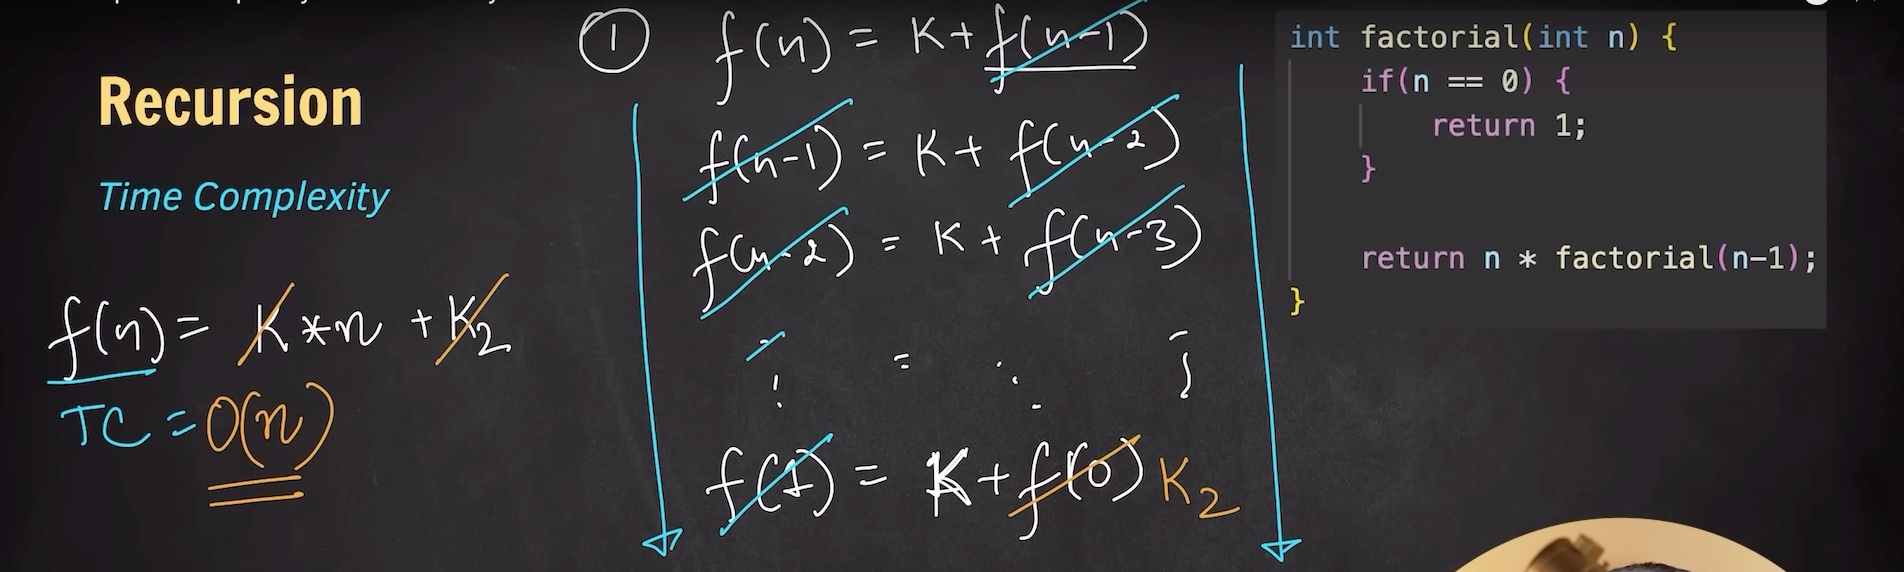 Recursion
Time Complexity
f(n) = K * n + K2
TC = O(n)
1 f(n) = K + f(n-1)
f(n-1) = K + f(n-2)
f(n-2) = K + f(n-3)
f(1) = K + f(0) K2
int factorial(int n) {
if(n == 0) {
return 1;
}
return n * factorial(n-1);
}